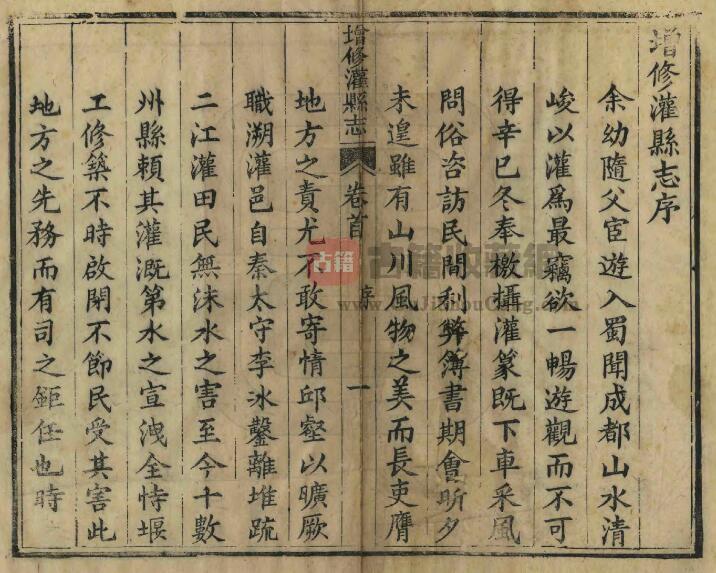 增修灌縣志序
余幼隨父宦遊入蜀聞成都山水清
峻以灌爲最竊欲一暢遊觀而不可
得辛巳冬奉檄攝灌篆既下車采風
問俗咨訪民間利弊簿書期會昕夕
未遑雖有山川風物之美而長吏膺
增修灌縣志
卷首
序
一
地方之責尤不敢寄情邱壑以曠厥
職溯灌邑自秦太守李冰鑿離堆疏
二江灌田民無沫水之害至今十數
州縣賴其灌溉第水之宣洩全恃堰
工修築不時啟閉不節民受其害此
地方之先務而有司之鉅任也時
古籍
古籍收藏網